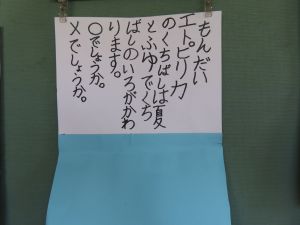 もんだい
エトピリカ
のくちばしは夏
とふゆでくち
ばしのいろがかわ
ります。
○でしょうか。
×でしょうか。